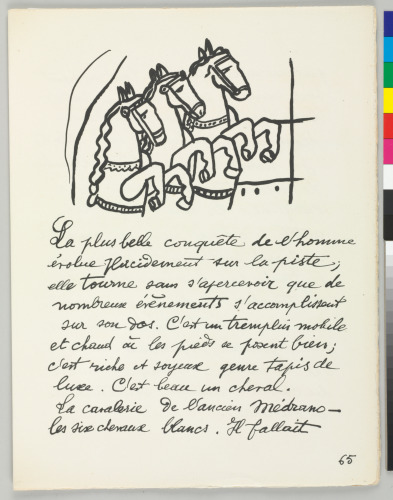 La plus belle conquête de l'homme
évolue placidement sur la piste;
elle tourne sans s'apercevoir que de
nombreux évènements s'accomplissent
sur son dos. C'est un tremplin mobile
et chaud où les pieds se posent bien;
c'est riche et soyeux genre tapis de
luxe. C'est beau un cheval.
La cavalerie de l'ancien Médrano —
les six chevaux blancs. Il fallait
65